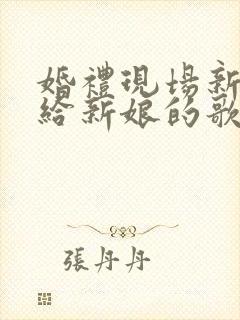 婚禮現場新
給新娘的歌
張丹丹